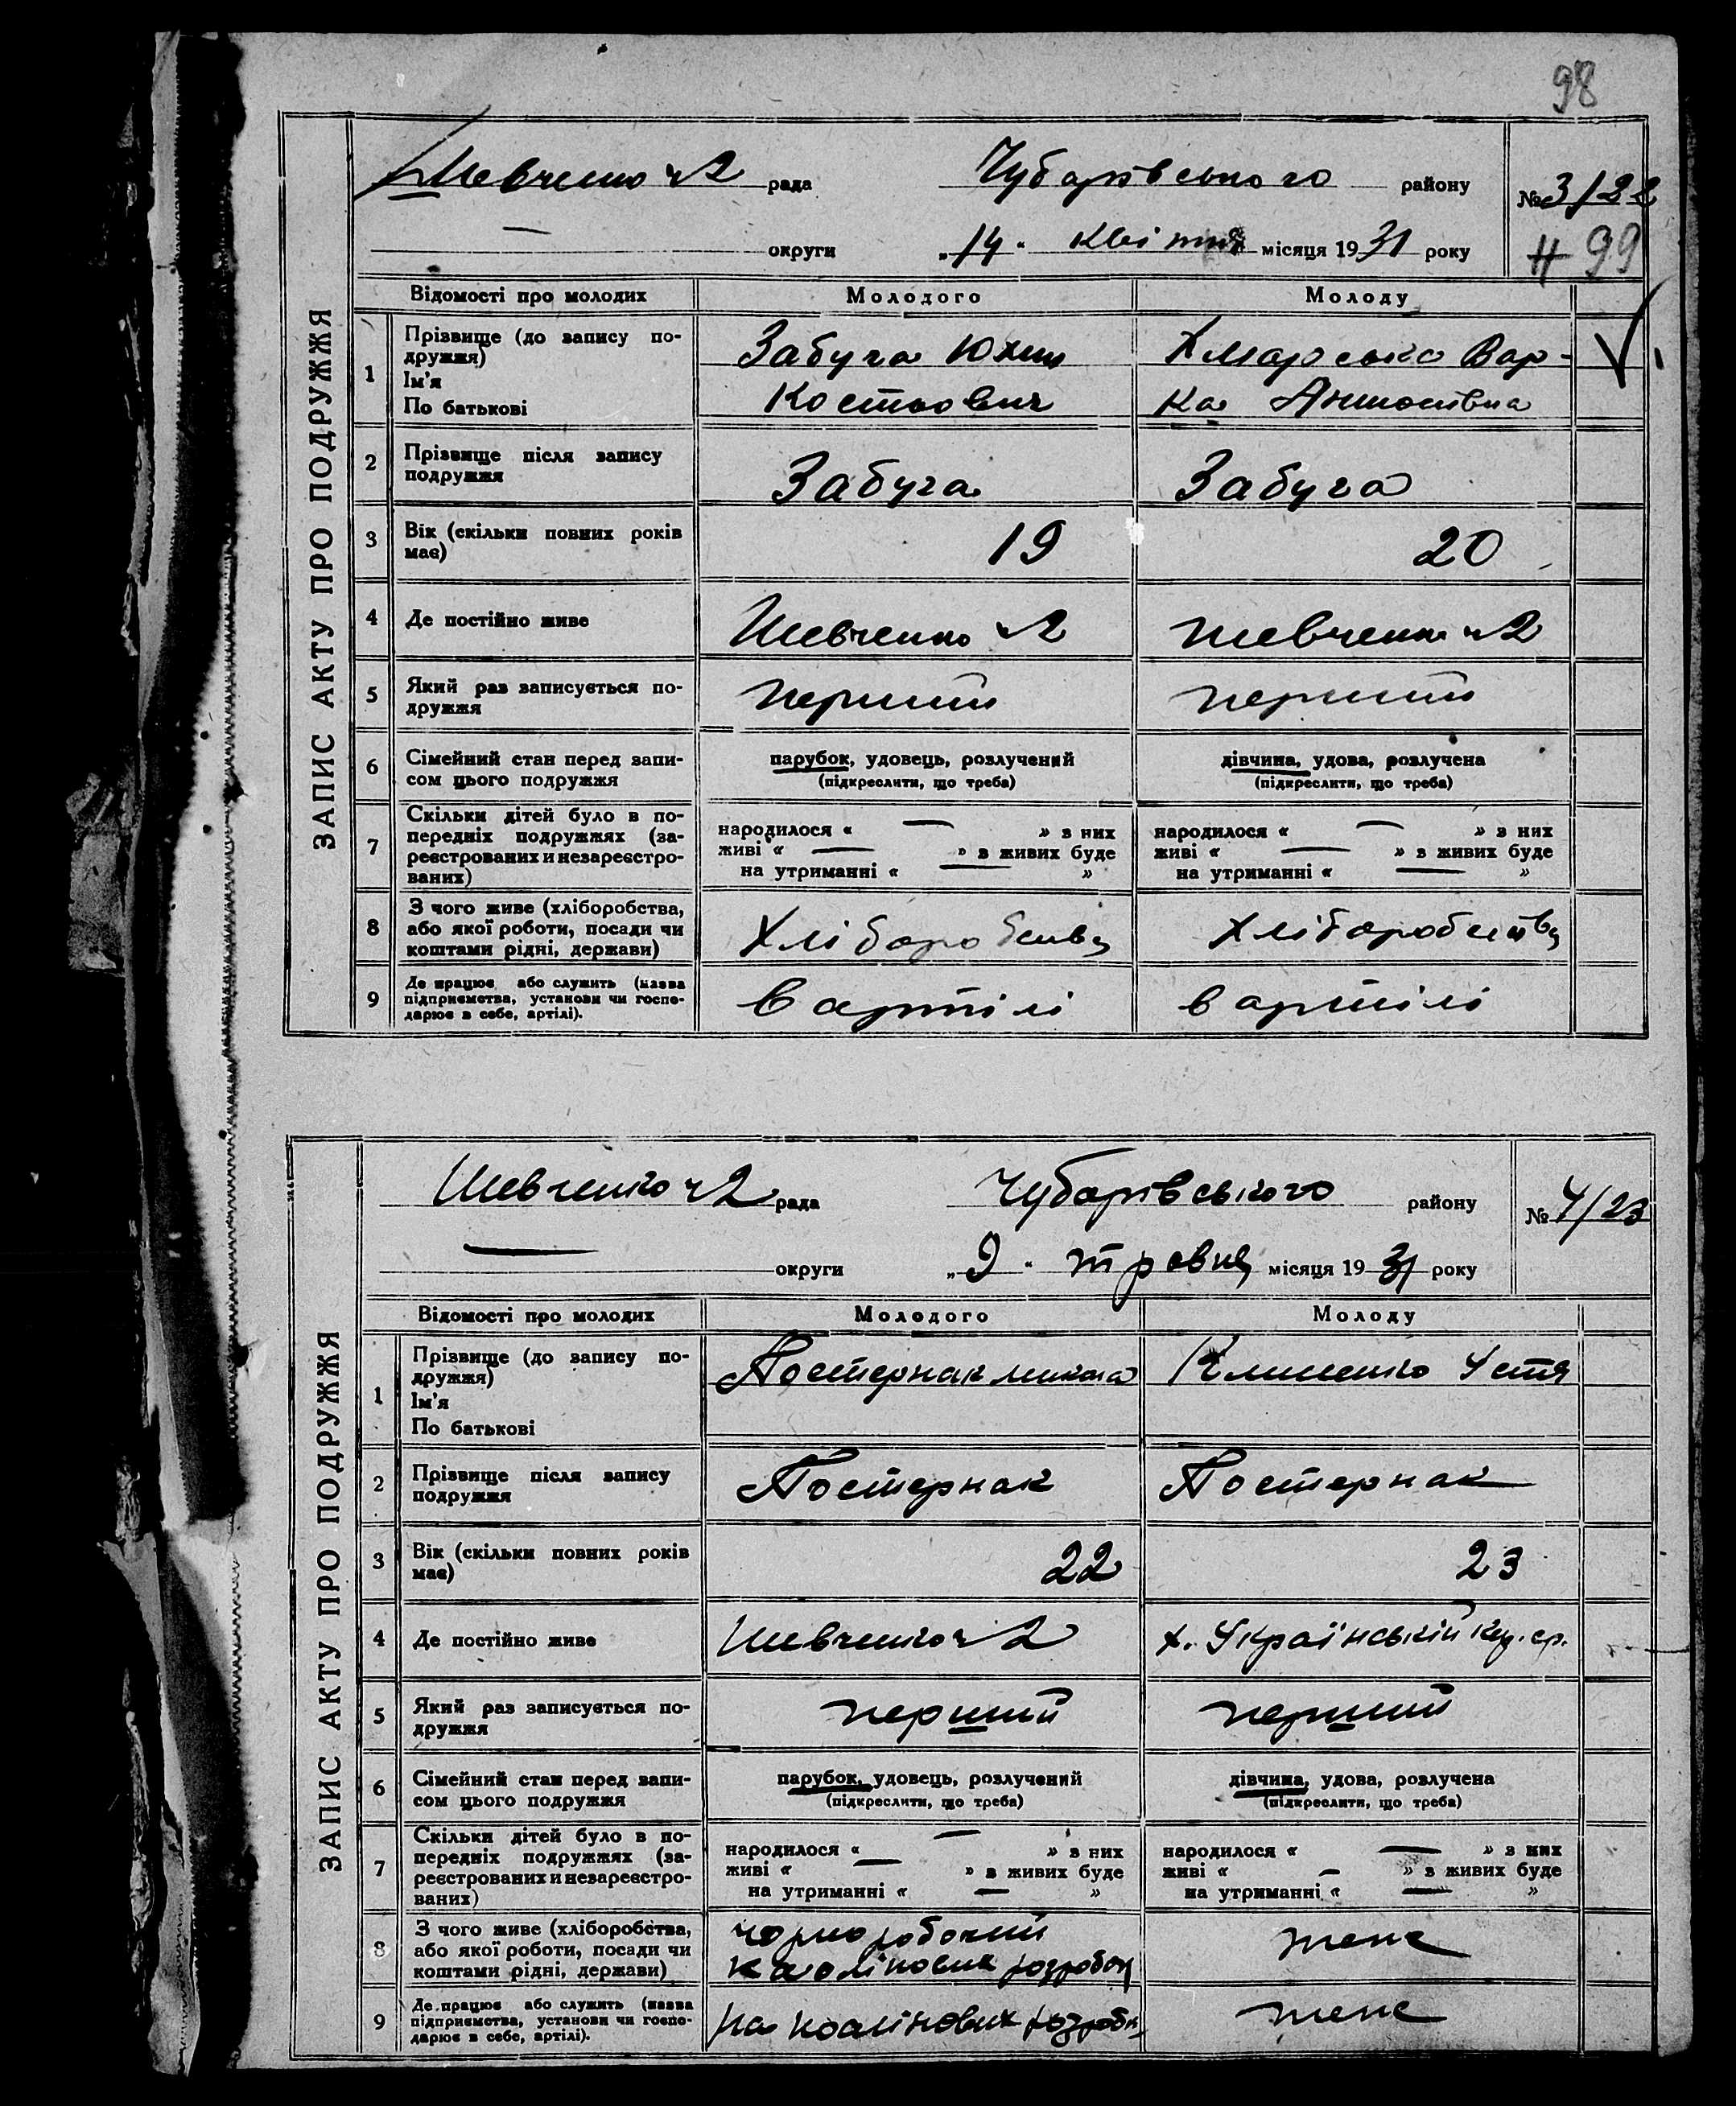 98
Шевченко ч2 рада Чубарівського району №3/22
— округи „14" квітня місяця 1931 року
99
ЗАПИС АКТУ ПРО ПОДРУЖЖЯ
Відомості про молодих Молодого Молоду
1 Прізвище (до запису по-
дружжя)
Ім'я
По батькові
Забуга Юхим
Костьович
Хмарська Вар-
ка Антонівна
2 Прізвище після запису
подружжя
Забуга Забуга
3 Вік (скільки повних років
має)
19 20
4 Де постійно живе Шевченко ч2 шевченко ч2
5 Який раз записується по-
дружжя
перший перший
6 Сімейний стан перед запи-
сом цього подружжя
парубок, удовець, розлучений
(підкреслити, що треба)
дівчина, удова, розлучена
(підкреслити, що треба)
7 Скільки дітей було в по-
передніх подружжях (за-
реєстрованих и незареєстро-
ваних)
народилося « — » з них
живі « — » з живих буде
на утриманні « — »
народилося « — » з них
живі « — » з живих буде
на утриманні « — »
8 З чого живе (хліборобства,
або якої роботи, посади чи
коштами рідні, держави)
Хліборобства хліборобства
9 Де працює або служить (назва
підприємства, установи чи госпо-
дарює в себе, артілі).
в артілі в артілі
Шевченко ч2 рада Чубарівського району №4/23
— округи „9" травня місяця 1931 року
ЗАПИС АКТУ ПРО ПОДРУЖЖЯ
Відомості про молодих Молодого Молоду
1 Прізвище (до запису по-
дружжя)
Ім'я
По батькові
Постернак микола Клименко Устя
2 Прізвище після запису
подружжя
Постернак Постернак
3 Вік (скільки повних років
має)
22 23
4 Де постійно живе Шевченко ч2 х. Український
5 Який раз записується по-
дружжя
перший перший
6 Сімейний стан перед запи-
сом цього подружжя
парубок, удовець, розлучений
(підкреслити, що треба)
дівчина, удова, розлучена
(підкреслити, що треба)
7 Скільки дітей було в по-
передніх подружжях (за-
реєстрованих и незареєстро-
ваних)
народилося « — » з них
живі « — » з живих буде
на утриманні « — »
народилося « — » з них
живі « — » з живих буде
на утриманні « — »
8 З чого живе (хліборобства,
або якої роботи, посади чи
коштами рідні, держави)
чорноробочий
каолінових розробок
теже
9 Де працює або служить (назва
підприємства, установи чи госпо-
дарює в себе, артілі).
на коалінових розробк
теже